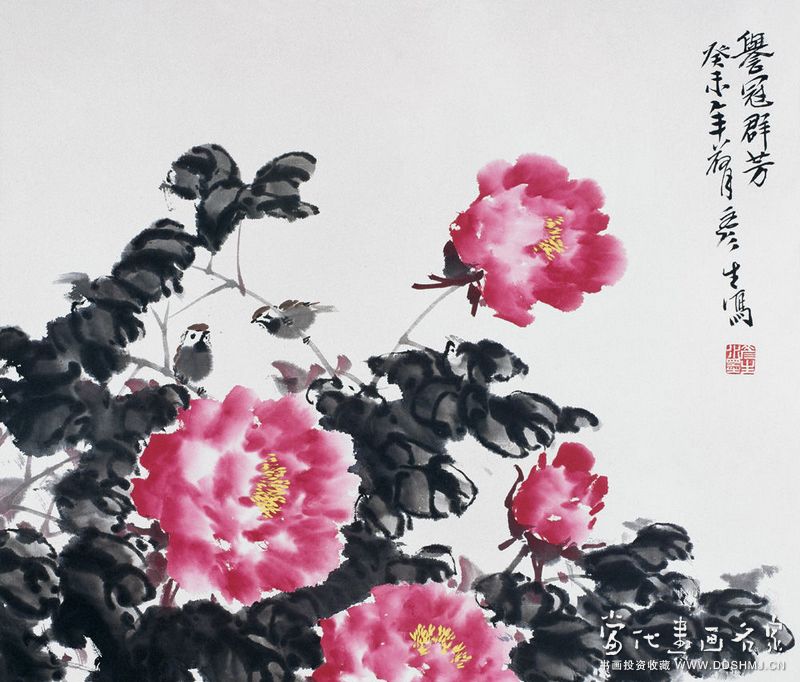 譽冠群芳
癸未年荷月奕生寫
當代書画名家
书画投资收藏 WWW.DDSHMJ.CN